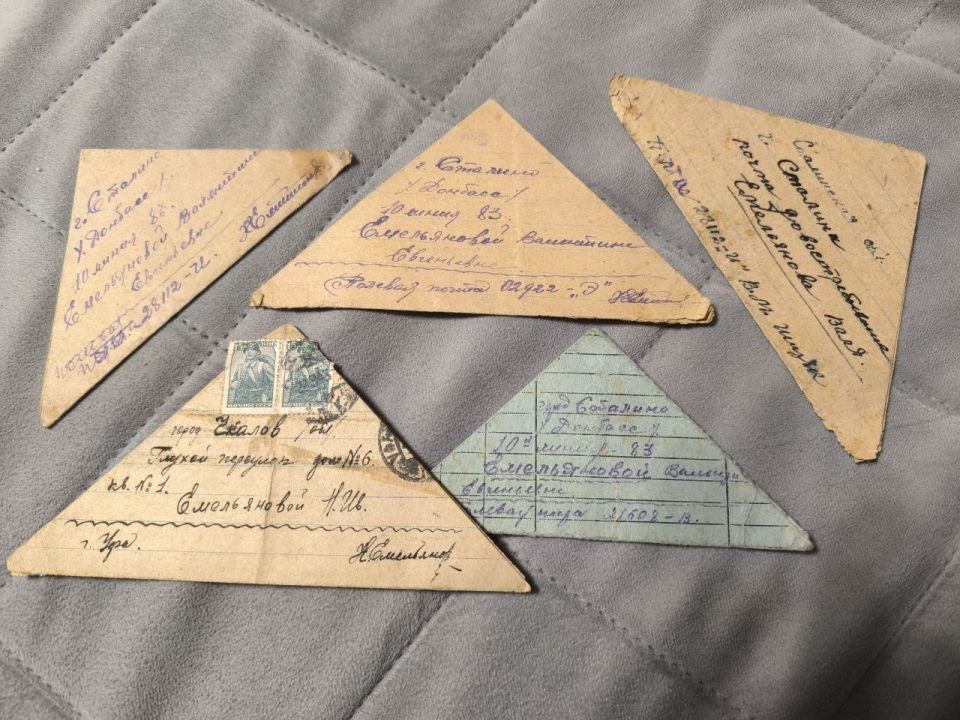 г. Сталино
/Донбасс/
10 линия 83
Емельяновой Валентине
Евгеньевне
28112-И.
г. Сталино
/Донбасс/
10 линия 83.
Емельяновой Валентине
Евгеньевне
Полевая почта 02922-„Э"
Сталинская об.
г. Сталина
почта до востребования
Емельянова Валя.
город Чкалов /обл.
Глухой переулок дом №6.
кв. №1.
Емельяновой Н. Ив.
г. Уфа.
Н.Емельянов
/Донбасс/
10я линия - 83
Емельяновой
Евгеньевне
21608-В.